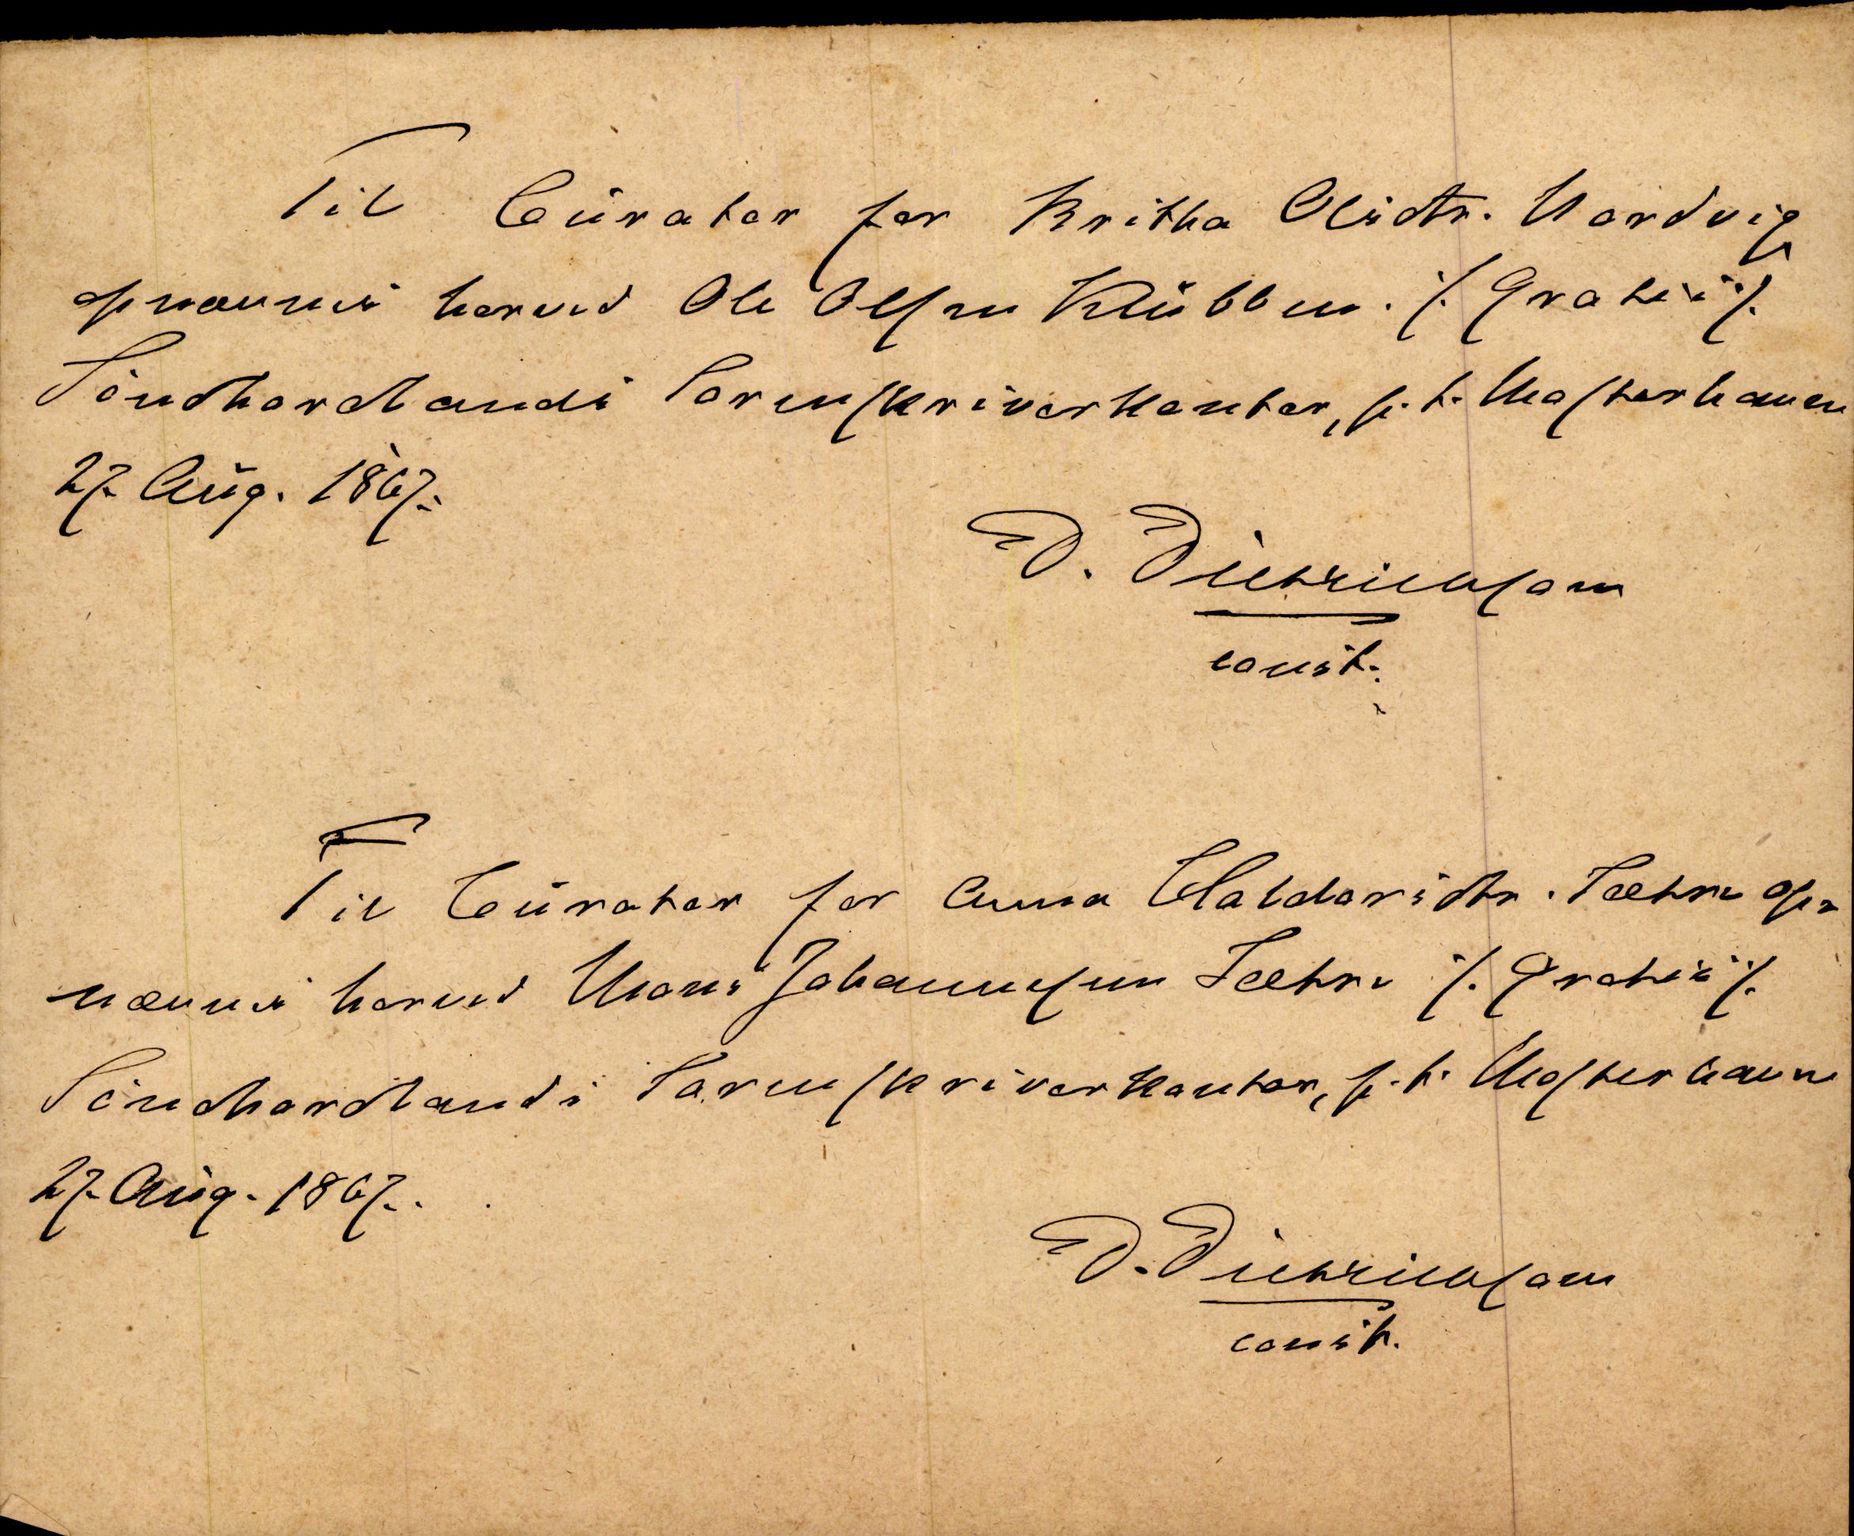 Til Curator for Britha Olsdtr. Nordvig
opnævnes herved Ole Olsen Klubben. ·/. Gratis ·/.
Söndhordlands Sorenskriverkontor, p. t. Mosterhavn
27. Aug. 1867.
D. Dietrichson
const.
Til Curator for Anna Haldorsdtr. Sætre op-
nævnes herved Mons Johannessen Sætre ·/. Gratis ·/.
Söndhordlands Sorenskriverkontor, p. t. Mosterhavn
27. Aug. 1867.
D. Dietrichson
const.